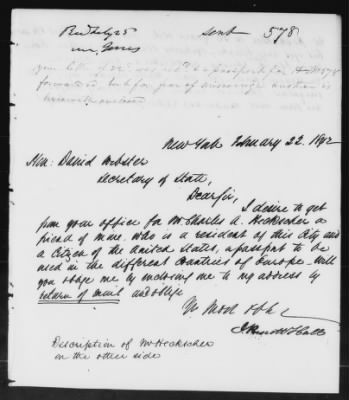 Rec'd Feby 25 Sent 578
your letter of 22 was rec'd & a passport for
forwarded, but for fear of miscarriage another is
New York February 22. 1842
Hon: Daniel Webster
Secretary of State,
Dear Sir, I desire to get
from your office for Mr Charles A. Heckscher a
friend of mine, who is a resident of this City and
a Citizen of the United States, a passport to be
used in the different Countries of Europe. Will
you oblige me by inclosing me to my address by
return of mail and oblige
Yr Most Obt
Hall
Description of Mr Heckscher
on the other side